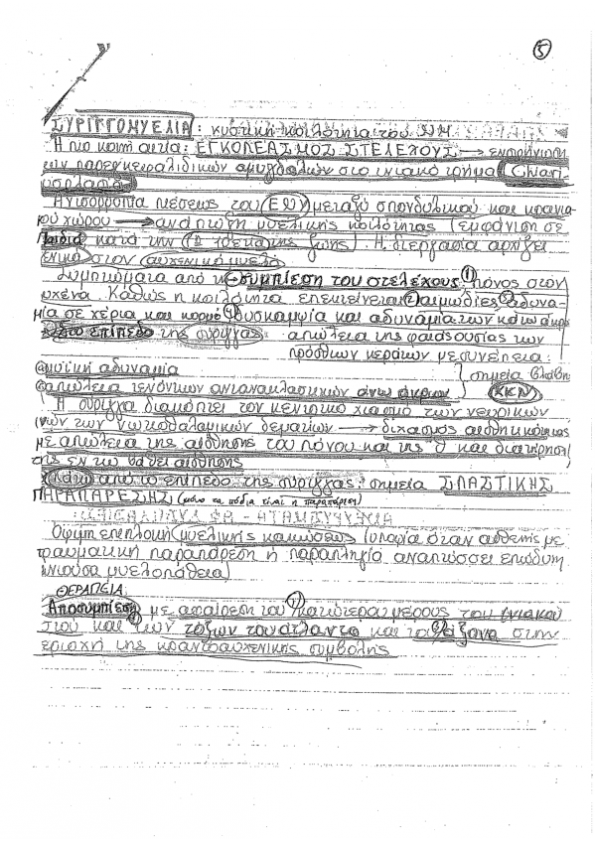 5
ΣΥΡΙΓΓΟΜΥΕΛΙΑ: κυστική κοιλότητα του ΝΜ
Η πιο κοινή αιτία: ΕΓΚΟΛΕΑΣΜΟΣ ΣΤΕΛΕΧΟΥΣ → ενσφήνωση
των παρεγκεφαλιδικών αμυγδαλών στο ινιακό τρήμα Chiari
Ανισορροπία πιέσεως του ΕΝΥ μεταξύ σπονδυλικού και κρανια-
κού χώρου → ανάπτυξη μυελικής κοιλότητας (εμφάνιση σε
Παιδιά κατά την 1η δεκαετία ζωής). Η διεργασία αρχίζει
στον αυχενικό μυελό
Συμπτώματα από τη συμπίεση του στελέχους: ① πόνος στον
αυχένα. Καθώς η κοιλότητα επεκτείνεται ② αιμωδίες ③ αδυνα-
μία σε χέρια και κορμό ④ δυσκαμψία και αδυναμία των κάτω άκρων
επίπεδο της σύριγγας: απώλεια της φαιάς ουσίας των
πρόσθιων κεράτων με συνέπεια:
μυϊκή αδυναμία
απώλεια τενόντιων αντανακλαστικών άνω άκρων } σημεία βλάβης ΚΚΝ
Η σύριγγα διακόπτει τον κεντρικό χιασμό των νευρικών
ινών των νωτιοθαλαμικών δεματίων → διχασμός αισθητικότητας
με απώλεια της αίσθησης του πόνου και της θ και διατήρηση
της εν τω βάθει αίσθησης
Κάτω από το επίπεδο της σύριγγας: σημεία ΣΠΑΣΤΙΚΗΣ
ΠΑΡΑΠΑΡΕΣΗΣ (μόνο τα πόδια είναι η παραπάρεση)
Όψιμη επιπλοκή μυελικής κακώσεως (υποψία όταν ασθενής με
τραυματική παραπάρεση ή παραπληγία αναπτύσσει επώδυνη
ανιούσα μυελοπάθεια)
ΘΕΡΑΠΕΙΑ
Αποσυμπίεση με αφαίρεση του ① κατώτερου μέρους του ινιακού
οστού και ② των τόξων του άτλαντα και του ③ άξονα στην
περιοχή της κρανιοαυχενικής συμβολής